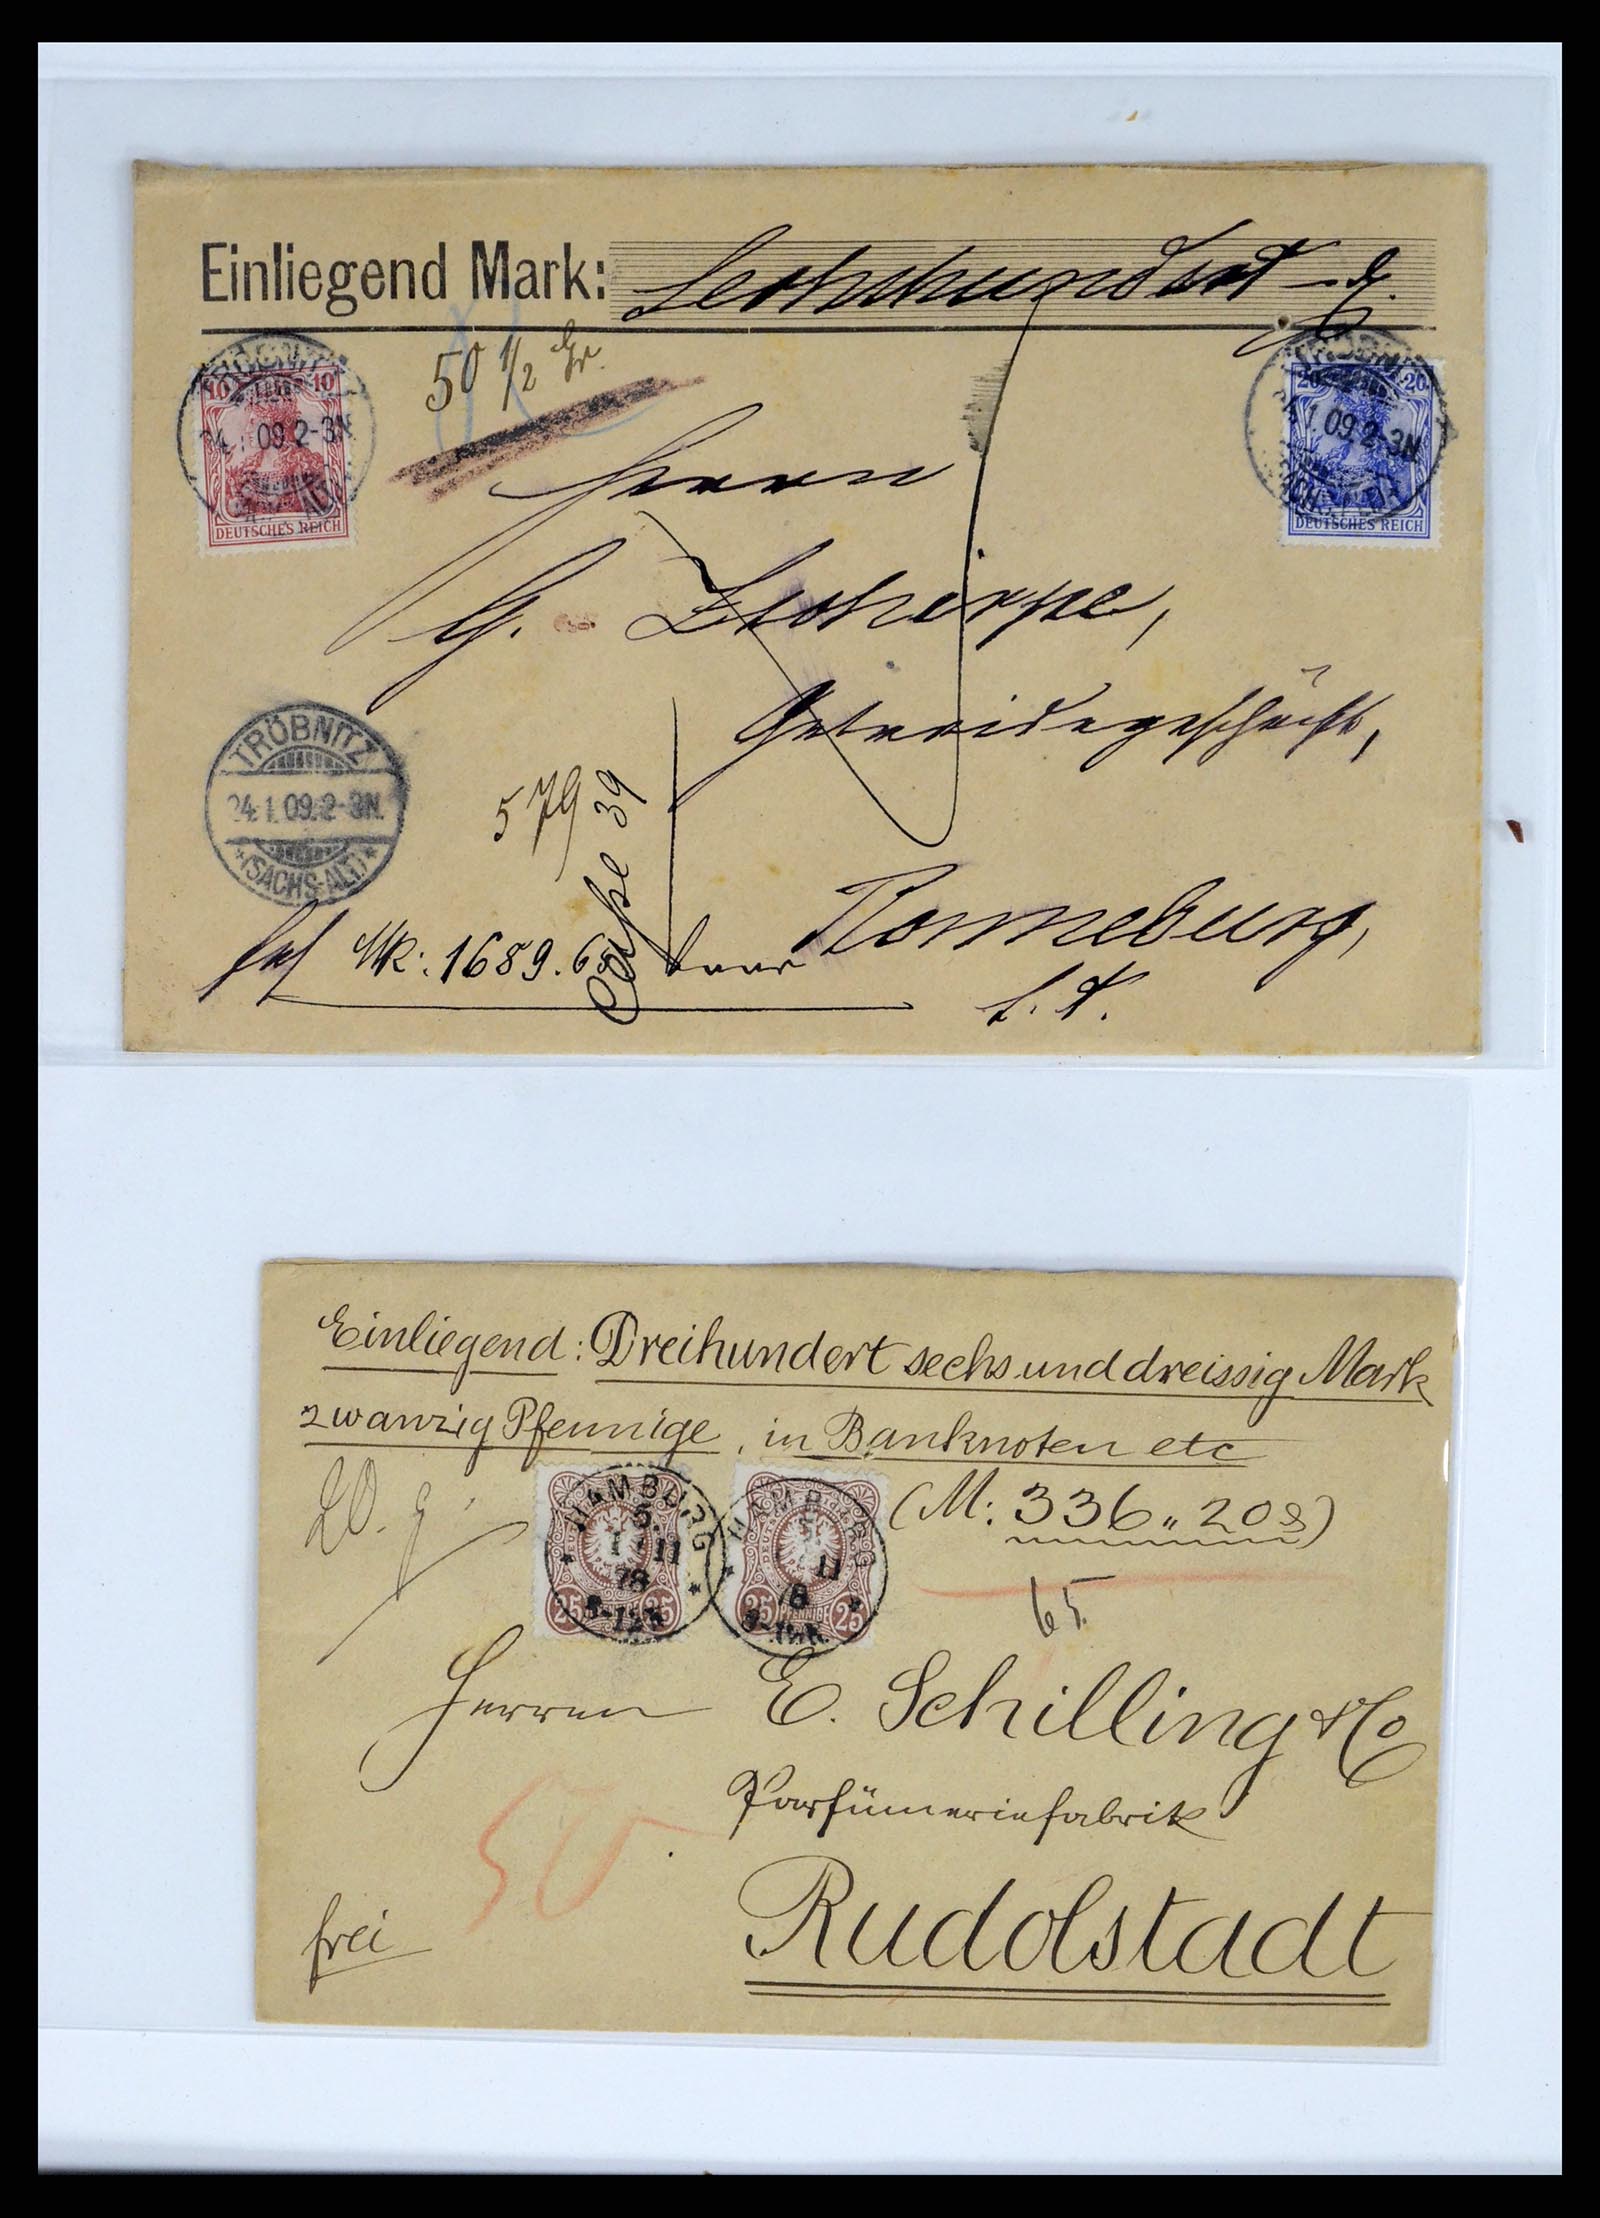 Einliegend Mark: Sechshundert
50 1/2 Gr.
10 10
DEUTSCHES REICH
24.1.09.2-3N
20 20
DEUTSCHES REICH
24.1.09.2-3N
Herrn
G. Zschierpe,
Getreidegeschäft,
TRÖBNITZ
24.1.09.2-3N.
*(SACHS-ALT.)*
579
39
Ronneburg,
S. A.
Mk: 1689.68
Einliegend: Dreihundert sechs und dreissig Mark
zwanzig Pfennige, in Banknoten etc
20. g
HAMBURG
5.
11
78
25 PFENNIGE 25
HAMBURG
11
25 PFENNIGE 25
(M: 336 „ 20 ₰)
65.
Herren E. Schilling & Co
Parfümeriefabrik
50
Rudolstadt
frei